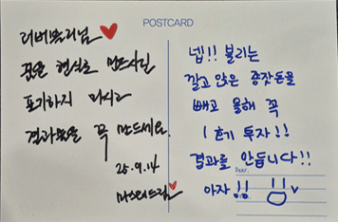 POSTCARD
리버뽀리님 ♥
꿈을 현실로 만드시길
포기하지 마시고
결과물을 꼭 만드세요.
25.9.14
마스터드림 ♥
넵!! 불리는
깔고 앉은 종잣돈을
빼고 올해 꼭
1호기 투자!!
결과를 만듭니다!!
아자!!